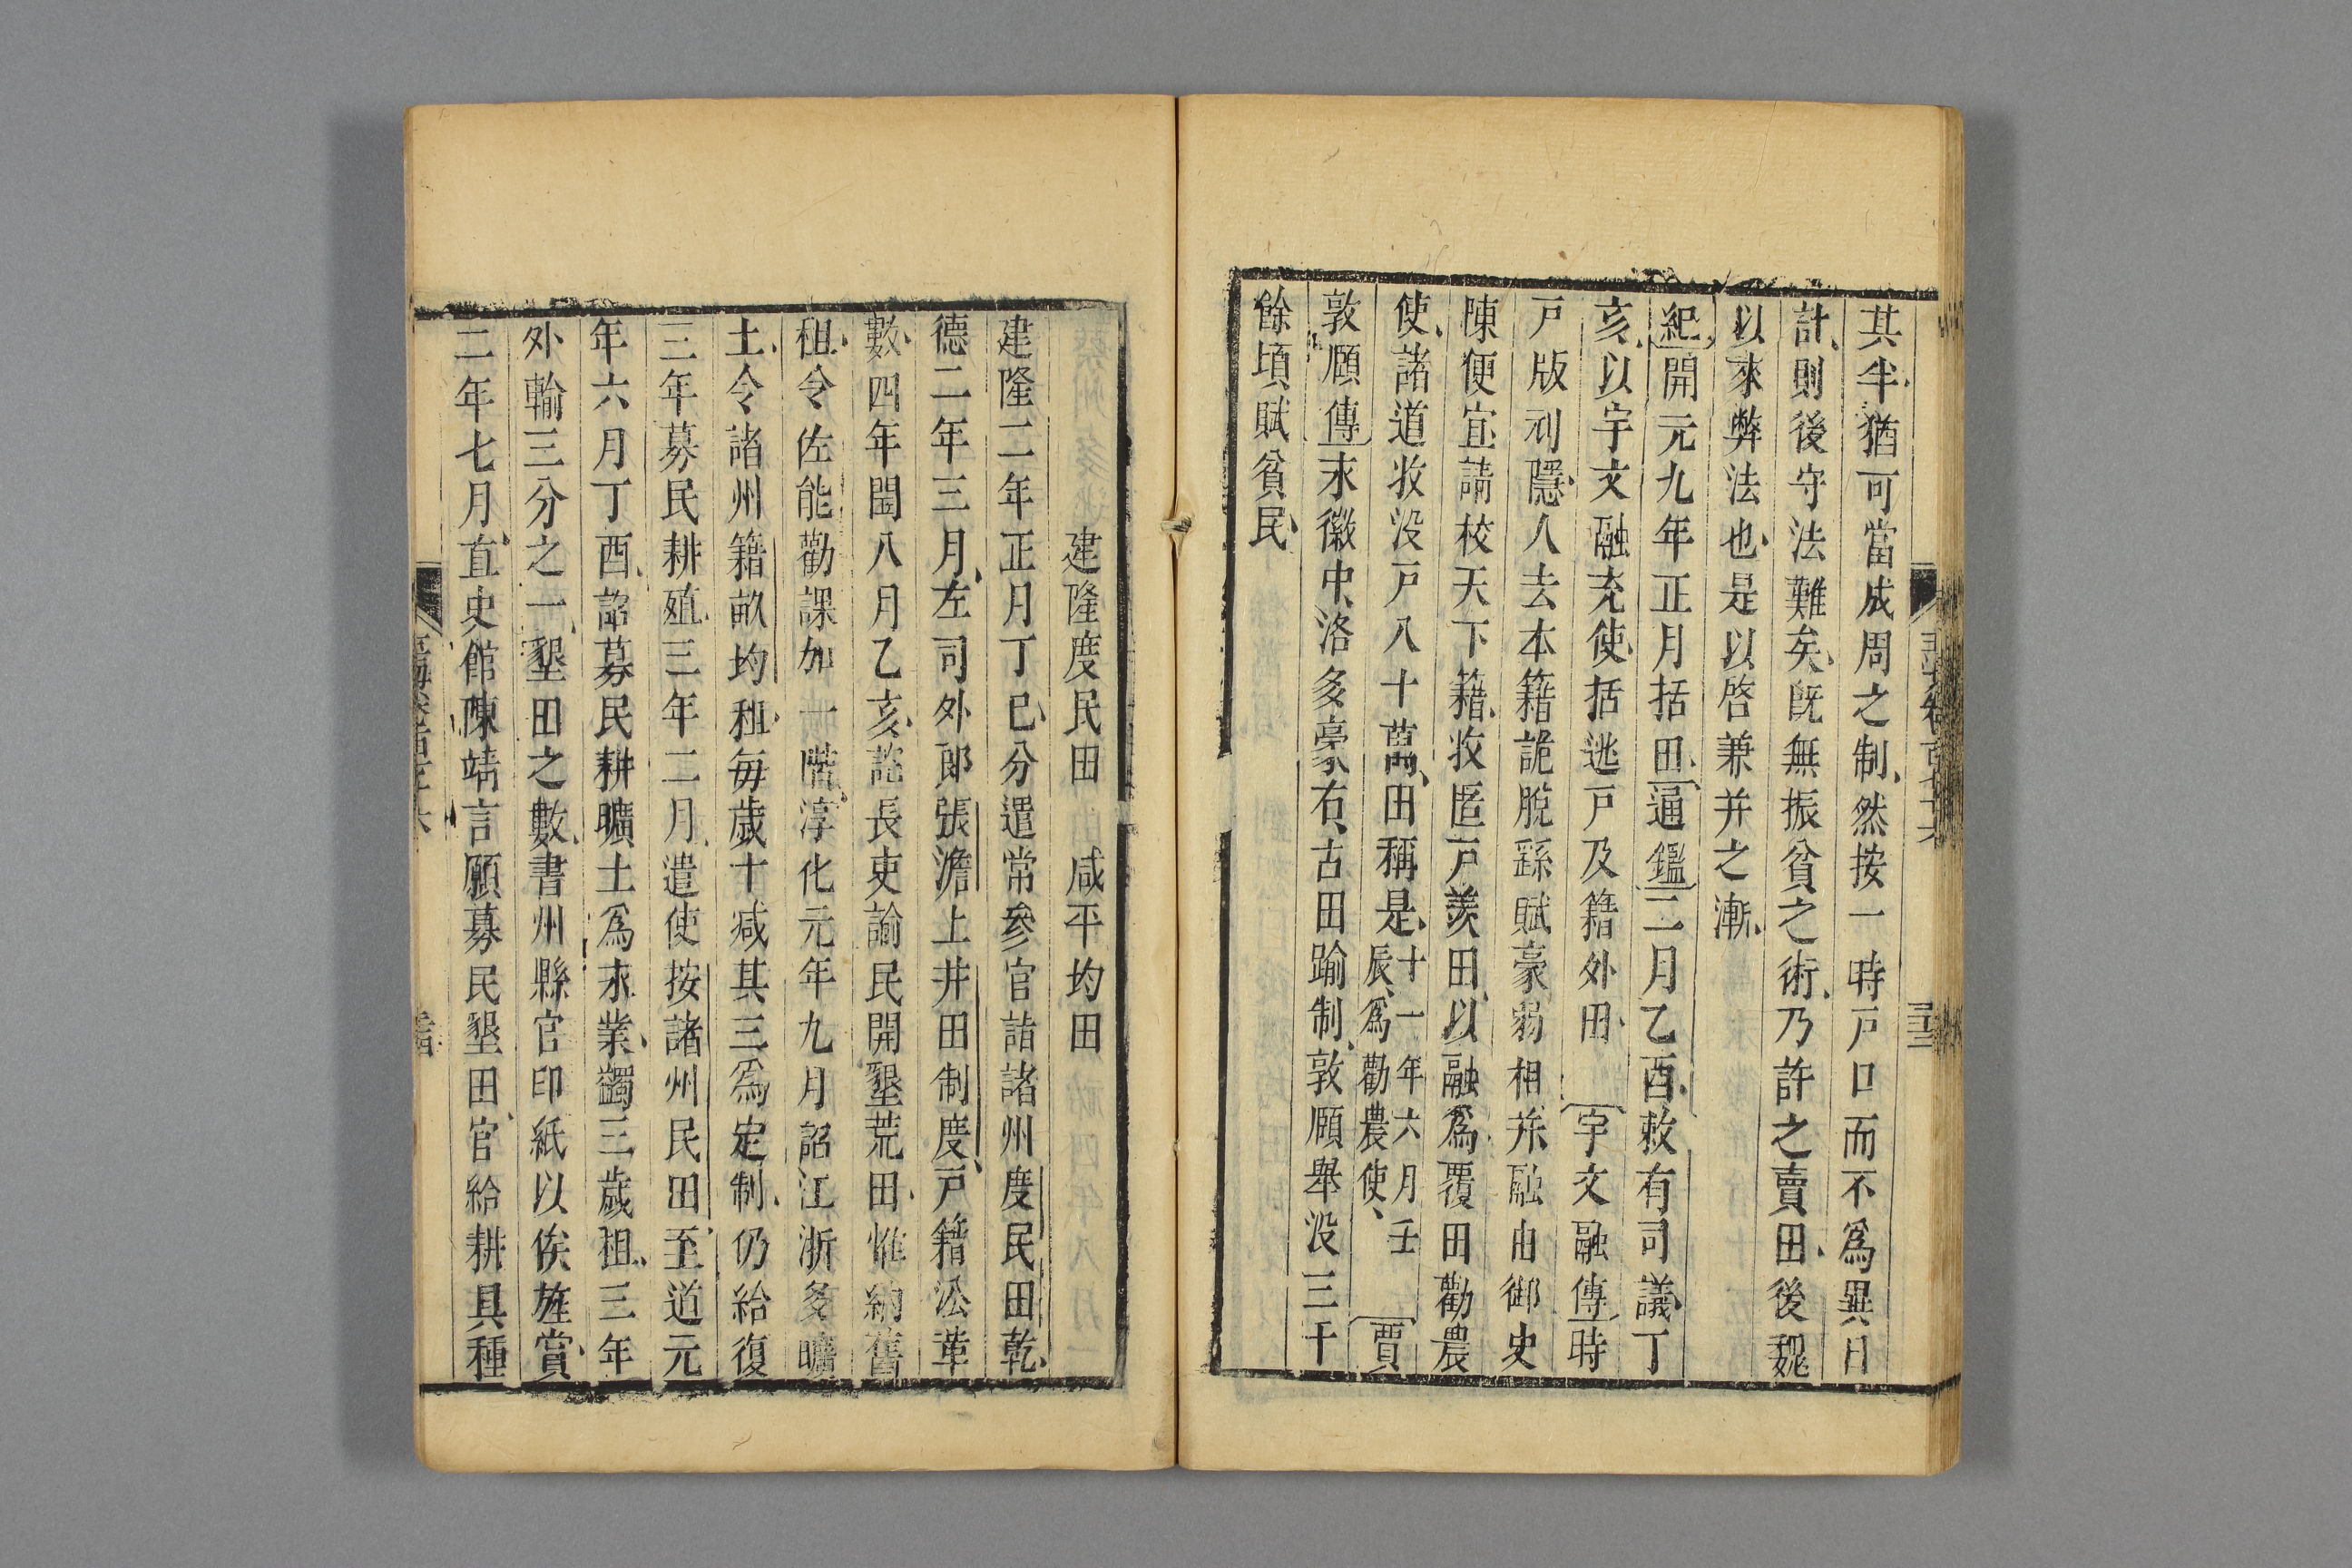 其半猶可當成周之制然按一時戸口而不爲異日
計則後守法難矣旣無振貧之術乃許之賣田後魏
以來弊法也是以啓兼并之漸
紀開元九年正月括田通鑑二月乙酉敕有司議丁
亥以宇文融充使括逃戸及籍外田 宇文融傳時
戸版刓隱人去本籍詭脫繇賦豪弱相并融由御史
陳便宜請校天下籍收匿戸羨田以融爲覆田勸農
使諸道收没戸八十萬田稱是十一年六月壬辰爲勸農使 賈
敦頤傳永徽中洛多豪右古田踰制敦頤舉没三千
餘頃賦貧民
建隆度民田 咸平均田
建隆二年正月丁巳分遣常參官詣諸州度民田乾
德二年三月左司外郎張澹上井田制度戸籍沿革
數四年閏八月乙亥詔長吏諭民開墾荒田惟納舊
租令佐能勸課加一階淳化元年九月詔江浙多曠
土令諸州籍畝均租每歲十減其三爲定制仍給復
三年募民耕殖三年二月遣使按諸州民田至道元
年六月丁酉詔募民耕曠土爲永業蠲三歲租三年
外輸三分之一墾田之數書州縣官印紙以俟旌賞
二年七月直史館陳靖言願募民墾田官給耕具種